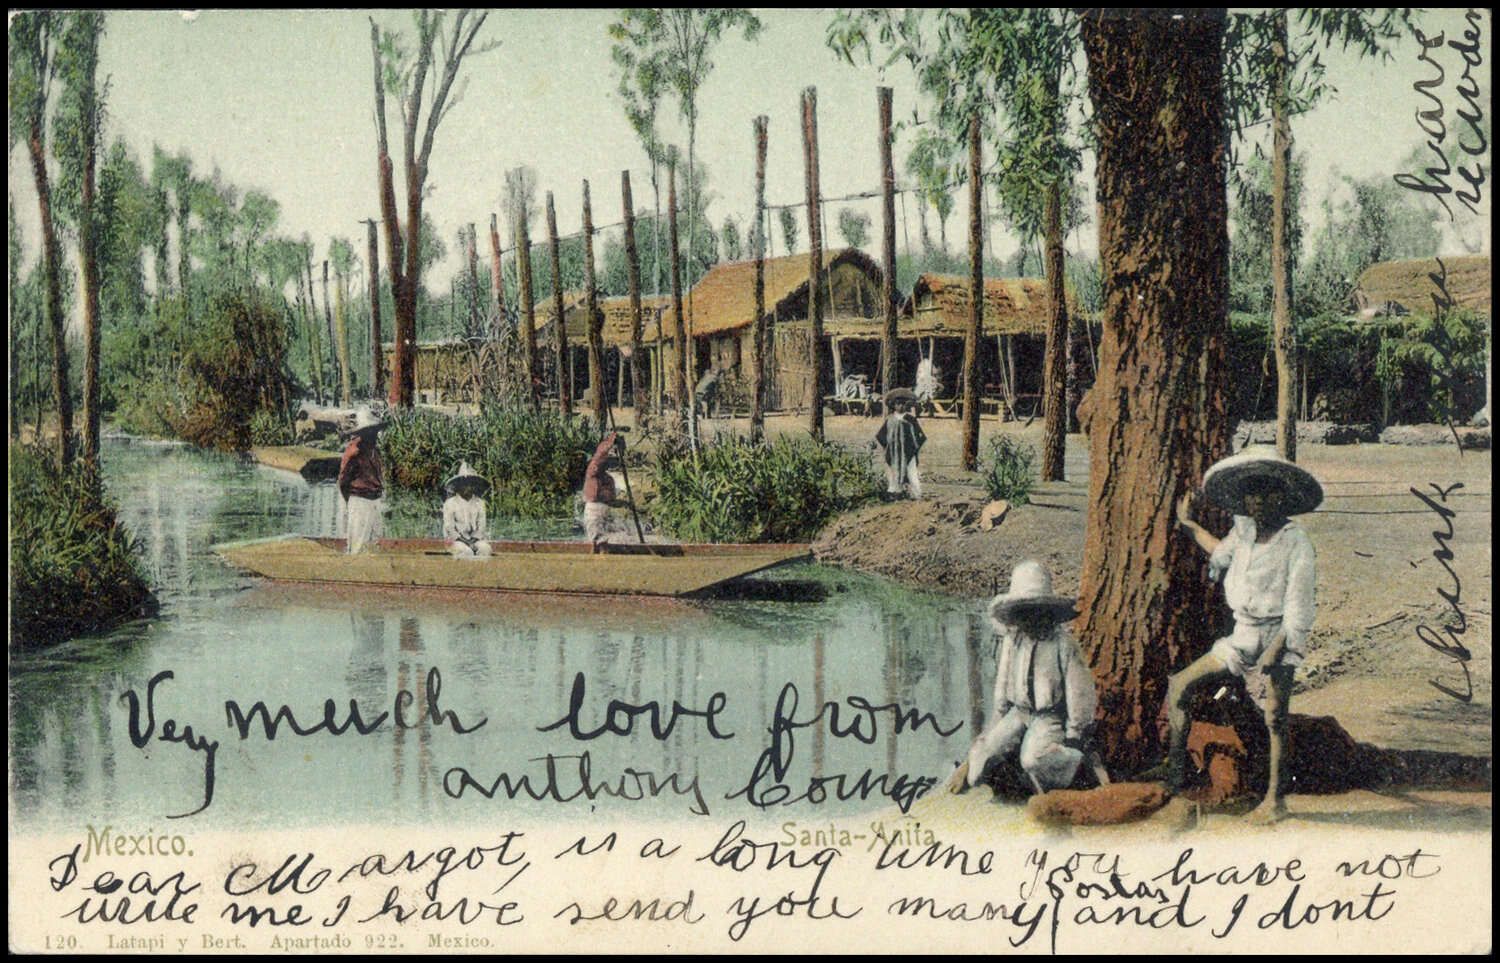 Mexico.
Santa-Anita
Dear Margot, is a long time you have not
write me I have send you many and I dont
Postas
think
you
have
recivden
Very much love from
anthony
120. Latapi y Bert. Apartado 922. Mexico.